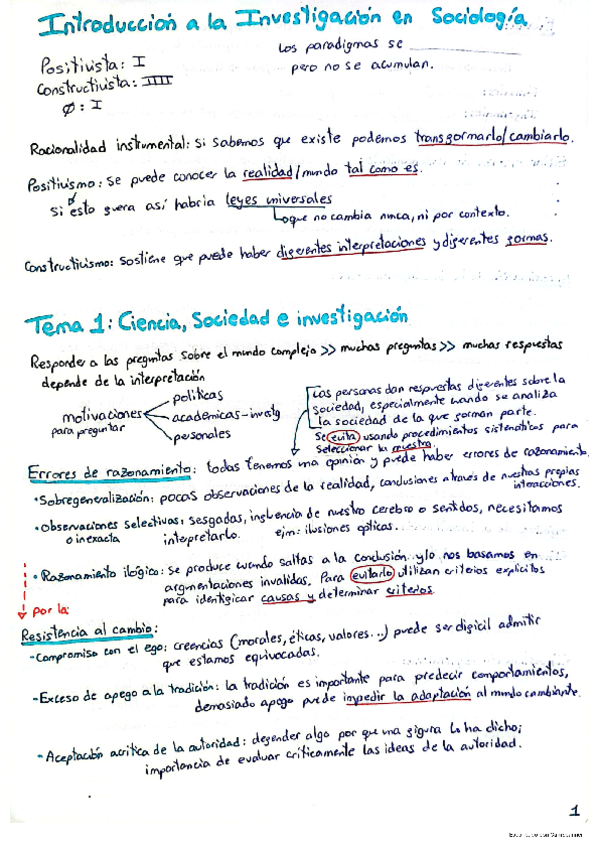 Introducción a la Investigación en Sociología
Los paradigmas se ____________
pero no se acumulan.
Positivista: I
Constructivista: IIII
Ø: I
Racionalidad instrumental: si sabemos que existe podemos transformarlo/cambiarlo.
Positivismo: se puede conocer la realidad/mundo tal como es.
si esto fuera así habría leyes universales
lo que no cambia nunca, ni por contexto.
Constructivismo: sostiene que puede haber diferentes interpretaciones y diferentes formas.
Tema 1: Ciencia, Sociedad e investigación
Responder a las preguntas sobre el mundo complejo >> muchas preguntas >> muchas respuestas
depende de la interpretación
motivaciones
para preguntar
políticas
académicas-investg
personales
Las personas dan respuestas diferentes sobre la
sociedad, especialmente cuando se analiza
la sociedad de la que forman parte.
Se evita usando procedimientos sistemáticos para
seleccionar la muestra.
Errores de razonamiento: todas tenemos una opinión y puede haber errores de razonamiento.
• Sobregeneralización: pocas observaciones de la realidad, conclusiones a través de nuestras propias
interacciones.
• Observaciones selectivas: sesgadas, influencia de nuestro cerebro o sentidos, necesitamos
o inexacta interpretarlo. ejm: ilusiones ópticas.
• Razonamiento ilógico: se produce cuando saltas a la conclusión y/o nos basamos en
argumentaciones invalidas. Para evitarlo utilizan criterios explícitos
para identificar causas y determinar criterios.
por la:
Resistencia al cambio:
• Compromiso con el ego: creencias (morales, éticas, valores...) puede ser difícil admitir
que estamos equivocadas.
• Exceso de apego a la tradición: la tradición es importante para predecir comportamientos,
demasiado apego puede impedir la adaptación al mundo cambiante.
• Aceptación acrítica de la autoridad: defender algo por que una figura lo ha dicho;
importancia de evaluar críticamente las ideas de la autoridad.
1